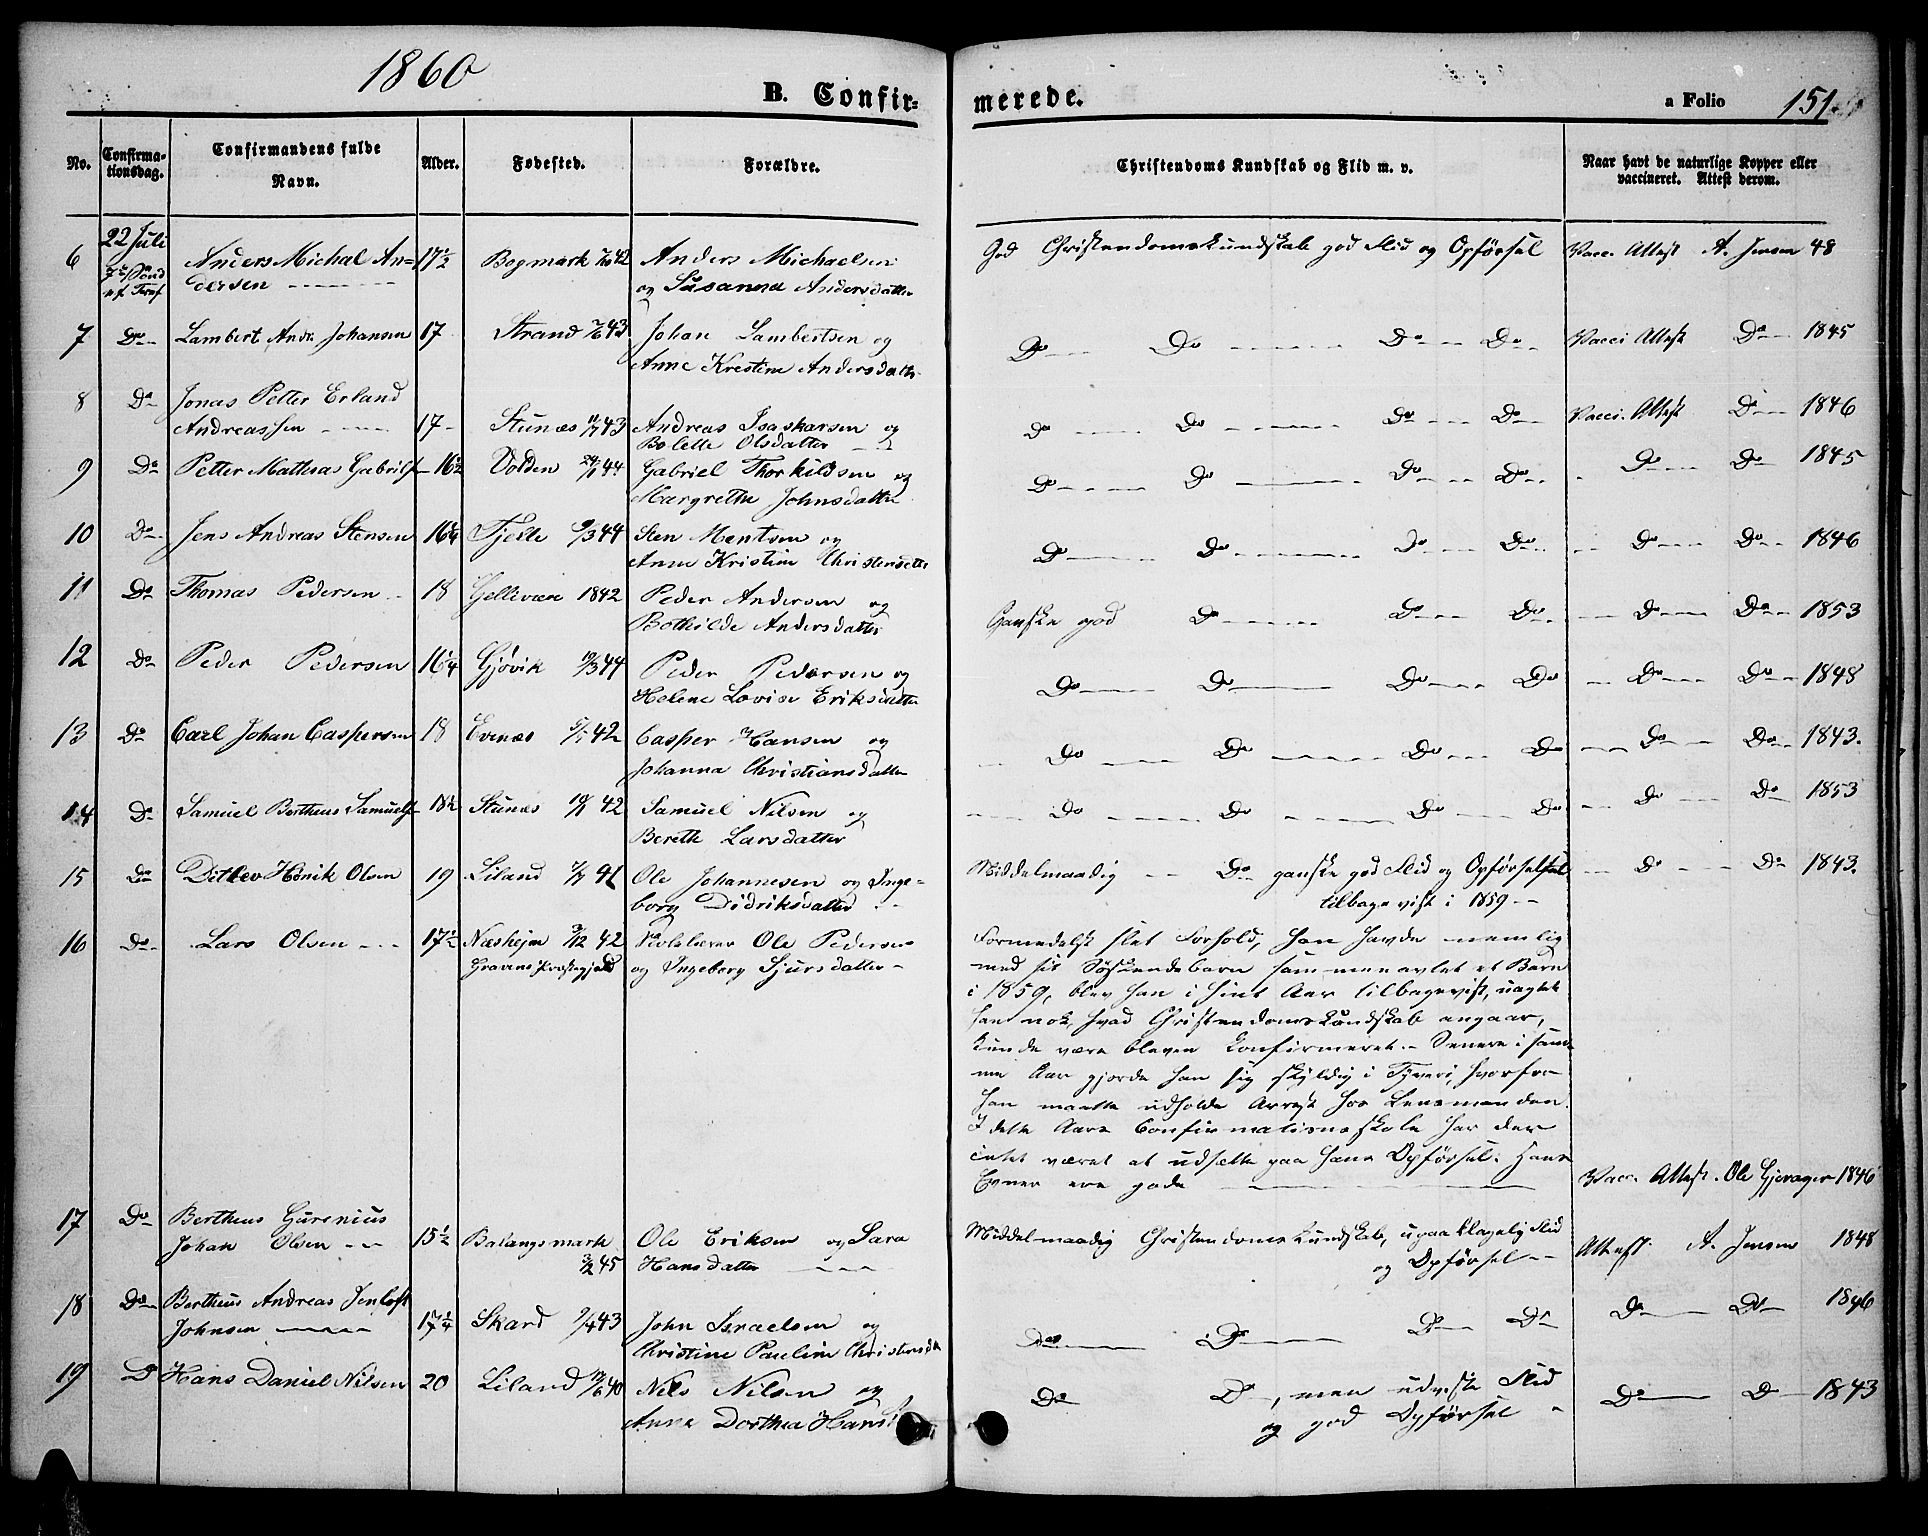 1860
B. Confir=
merede.
a Folio 151
No.
Confirma=
tionsdag.
Confirmandens fulde
Navn.
Alder.
Fødested.
Forældre.
Christendoms Kundskab og Flid m. v.
Naar havt de naturlige Kopper eller
vaccineret. Attest derom.
6 22 Juli Anders Michal An= 17½ Bogmark 42 Anders Michaelsen God Christendomskundskab god Flid og Opførsel Vacc. Attest A. Jensen 48
dersen og Susanna Andersdatter
7 Do Lambert Andr. Johansen 17 Strand 43 Johan Lambertsen og Do Do Do Do Vacci Attest Do 1845
Anne Kristine Andersdatter
8 Do Jonas Petter Erland
Andreassen 17 Stunæs 11/7 43 Andreas Isaskarsen og Do Do Do Do Vacci. Attest Do 1846
Bolette Olsdatter
9 Do Petter Mathias Gabrils 16½ Volden 44 Gabriel Thorkildsen og Do Do Do Do Do Do 1845
Margrethe Johnsdatter
10 Do Jens Andreas Stensen 16¼ Fjelde 9/3 44 Sten Mentsen og Do Do Do Do Do Do 1846
Anne Kristine Christensdtr
11 Do Thomas Pedersen 18 Gellivære 1842 Peder Andersen og Ganske god Do Do Do Do Do 1853
Bothilde Andersdatter
12 Do Peder Pedersen 16¼ Gjøvik 19/3 44 Peder Pedersen og Do Do Do Do Do Do 1848
Helene Lovise Eriksdatter
13 Do Carl Johan Caspersen 18 Evenæs 42 Casper Hansen og Do Do Do Do Do Do 1843.
Johanna Christiansdatter
14 Do Samuel Bertheus Samuels 18½ Stunæs 42 Samuel Nilsen og Do Do Do Do Do Do 1853
Berethe Larsdatter
15 Do Ditlev Hönik Olsen 19 Liland 41 Ole Johannesen og Inge= Middelmaadig Do ganske god Flid og Opførsel Do Do 1843.
borg Didriksdatter tilbagevist i 1859
16 Do Lars Olsen 17½ Næsheim 3/12 42 Skolelærer Ole Pedersen Formedelst slet Forhold, han havde nemlig
Gravens Præstegjeld og Ingeborg Sjursdatter med sit Søskendebarn sammenavlet et Barn
i 1859, blev han i hint Aar tilbagevist, uagtet
han nok, hvad Christendomskundskab angaar,
kunde være bleven konfirmeret. Senere i sam=
me Aar gjorde han sig skyldig i Tyveri, hvorfor
han maatte udholde Arrest hos Lensmanden.
I dette Aars Confirmationsskole har der
intet været at udsætte paa hans Opførsel. Hans
Evner ere gode Vacc. Attest. Ole Gjerager 1846
17 Do Bertheus Gurenius
Johan Olsen 15½ Balangsmark Ole Eriksen og Sara Middelmaadig Christendoms Kundskab, upaaklagelig Flid Attest A. Jensen 1848
3/2 45 Hansdatter og Opførsel
18 Do Bertheus Andreas Jenloft
Johnsen 17¼ Skard 9/4 43 John Israelsen og Do Do Do Do Do Do 1846
Christine Pauline Christensda
19 Do Hans Daniel Nilsen 20 Liland 40 Nils Nilsen og Do Do, men udviste Flid Do Do 1843
Anne Dorthea Hans og god Opførsel